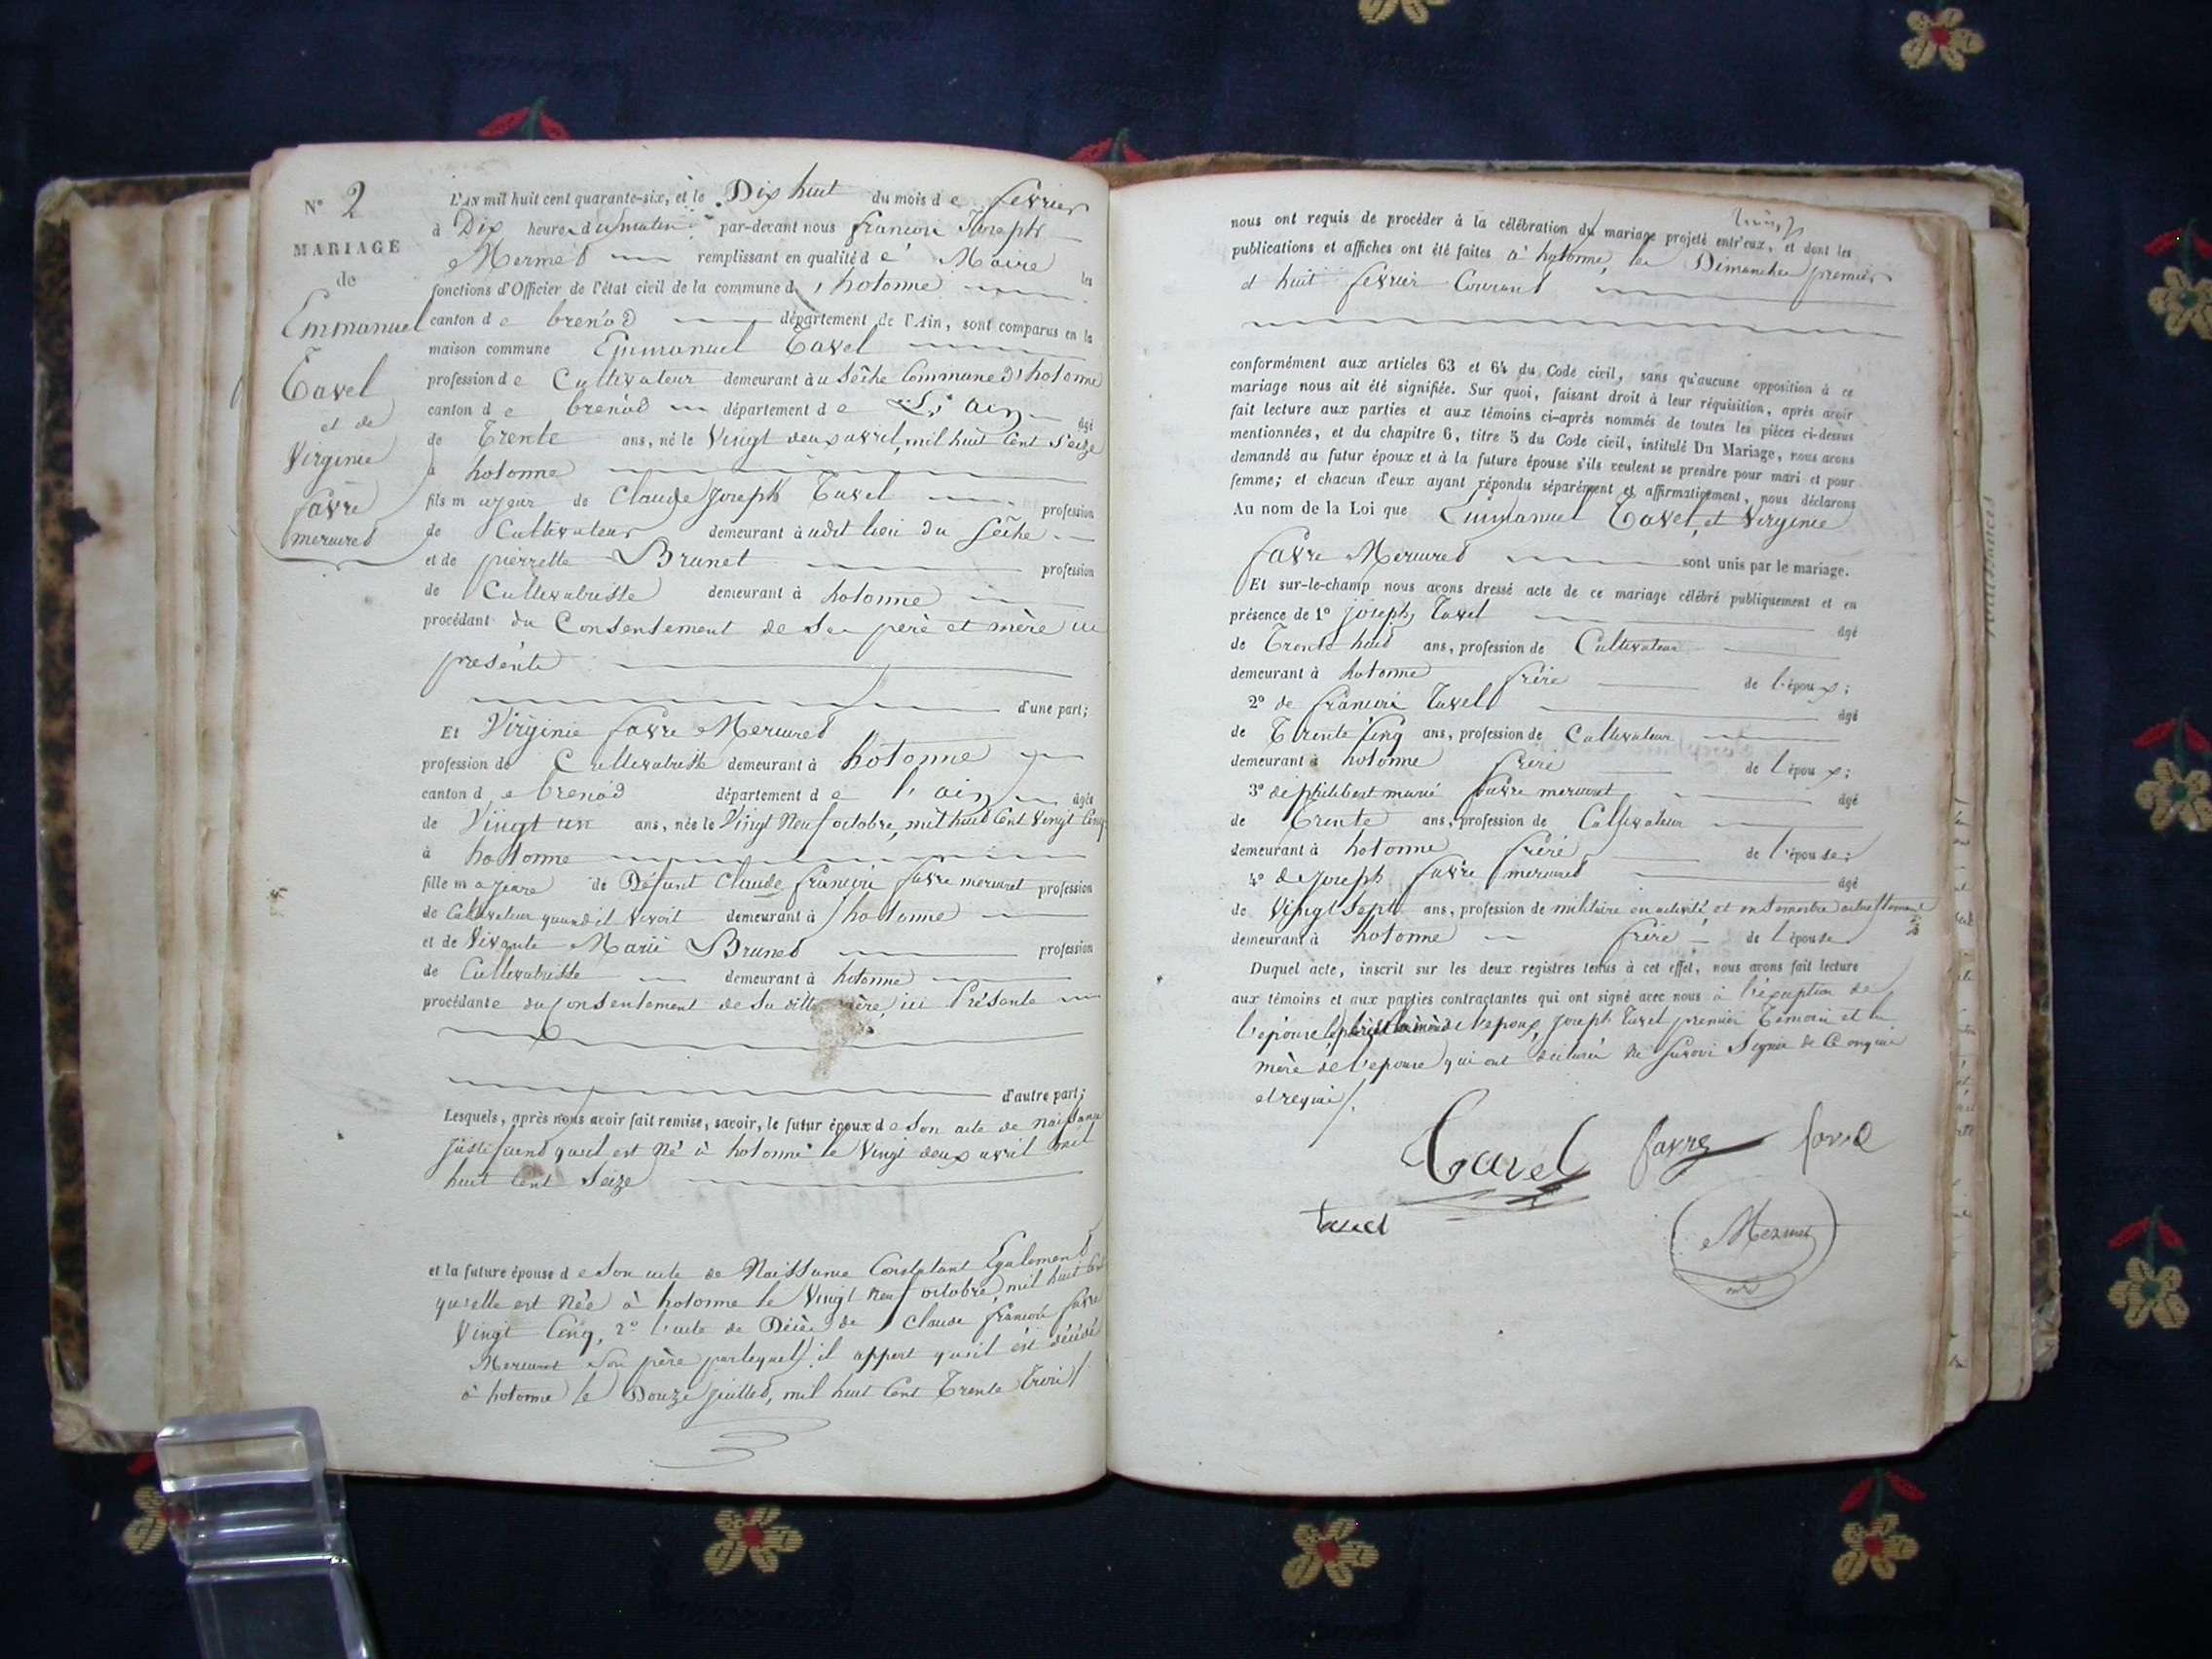 N° 2
MARIAGE
de
Emmanuel
Tavel
et de
Virginie
favre
mercuret
L'AN mil huit cent quarante-six, et le Dix huit du mois de fevrier
à Dix heures du matin par-devant nous françois Joseph
Mermet remplissant en qualité de Maire les
fonctions d'Officier de l'état civil de la commune d'hotonne
canton de brenod département de l'Ain, sont comparus en la
maison commune Emmanuel Tavel
profession de Cultivateur demeurant au Sêche Commune d'hotonne
canton de brenod département de L'ain âgé
de Trente ans, né le Vingt deux avril, mil huit Cent Seize
à hotonne
fils majeur de Claude Joseph Tavel profession
de Cultivateur demeurant audit lieu du Sêche
et de pierrette Brunet profession
de Cultivatrisse demeurant à hotonne
procédant du Consentement de Ses père et mère ici
présents
d'une part;
Et Virginie favre Mercuret
profession de Cultivatrisse demeurant à hotonne
canton de brenod département de l'ain âgée
de Vingt un ans, née le Vingt Neuf octobre, mil huit Cent Vingt Cinq
à hotonne
fille majeure de Défunt Claude françois favre mercuret profession
de Cultivateur quand il vivoit demeurant à hotonne
et de Vivante Marie Brunet profession
de Cultivatrisse demeurant à hotonne
procédante du Consentement de Sa ditte mère, ici Présente
d'autre part;
Lesquels, après nous avoir fait remise, savoir, le futur époux de Son acte de naissance
justifiant qu'il est Né à hotonne le Vingt deux avril mil
huit Cent Seize
et la future épouse de Son acte de Naissance Constatant Egalement
qu'elle est Née à hotonne le Vingt neuf octobre, mil huit Cent
Vingt Cinq, 2° l'acte de Décès de Claude françois favre
Mercuret Son père par lequel il appert qu'il est décédé
à hotonne le Douze juillet, mil huit Cent Trente Trois
nous ont requis de procéder à la célébration du mariage projeté entr'eux, et dont les
publications et affiches ont été faites à hotonne, les Dimanches premier
et huit fevrier Courant
conformément aux articles 63 et 64 du Code civil, sans qu'aucune opposition à ce
mariage nous ait été signifiée. Sur quoi, faisant droit à leur réquisition, après avoir
fait lecture aux parties et aux témoins ci-après nommés de toutes les pièces ci-dessus
mentionnées, et du chapitre 6, titre 5 du Code civil, intitulé Du Mariage, nous avons
demandé au futur époux et à la future épouse s'ils veulent se prendre pour mari et pour
femme; et chacun d'eux ayant répondu séparément et affirmativement, nous déclarons
Au nom de la Loi que Emmanuel Tavel, et Virginie
favre Mercuret sont unis par le mariage.
Et sur-le-champ nous avons dressé acte de ce mariage célébré publiquement et en
présence de 1° joseph Tavel âgé
de Trente huit ans, profession de Cultivateur
demeurant à hotonne frère de l'époux;
2° de françois Tavel âgé
de Trente Cinq ans, profession de Cultivateur
demeurant à hotonne frère de l'époux;
3° de philibert marie favre mercuret âgé
de Trente ans, profession de Cultivateur
demeurant à hotonne frère de l'épouse;
4° de joseph favre mercuret âgé
de Vingt Sept ans, profession de militaire en activité et en Semestre
demeurant à hotonne frère de l'épouse
Duquel acte, inscrit sur les deux registres tenus à cet effet, nous avons fait lecture
aux témoins et aux parties contractantes qui ont signé avec nous à l'éxception de
l'épouse, de l'epoux, joseph Tavel premier Temoin et la
mère de l'epouse qui ont declaré ne Savoir Signer de Ce enquis
et requis
Tavel favre favre
tavel
Mermet